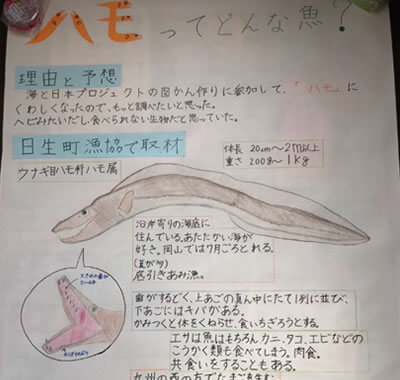 ハモってどんな魚?
理由と予想
海と日本プロジェクトの図かん作りに参加して、「ハモ」に
くわしくなったので、もっと調べたいと思った。
ヘビみたいだし、食べられない生物だと思っていた。
日生町漁協で取材
体長 20cm〜2m以上
重さ 200g〜1kg
ウナギ目ハモ科ハモ属
沿岸寄りの海底に
住んでいる。あたたかい海が
好き。岡山では7月ごろとれる。
(夏が多)
底引きあみ漁。
歯がするどく、上あごの真ん中にたて1列に並び、
下あごにはキバがある。
かみつくと体をくねらせ、食いちぎろうとする。
エサは魚はもちろんカニ、タコ、エビなどの
こうかく類も食べてしまう。肉食。
共食いをすることもある。
九州の西の方でたま